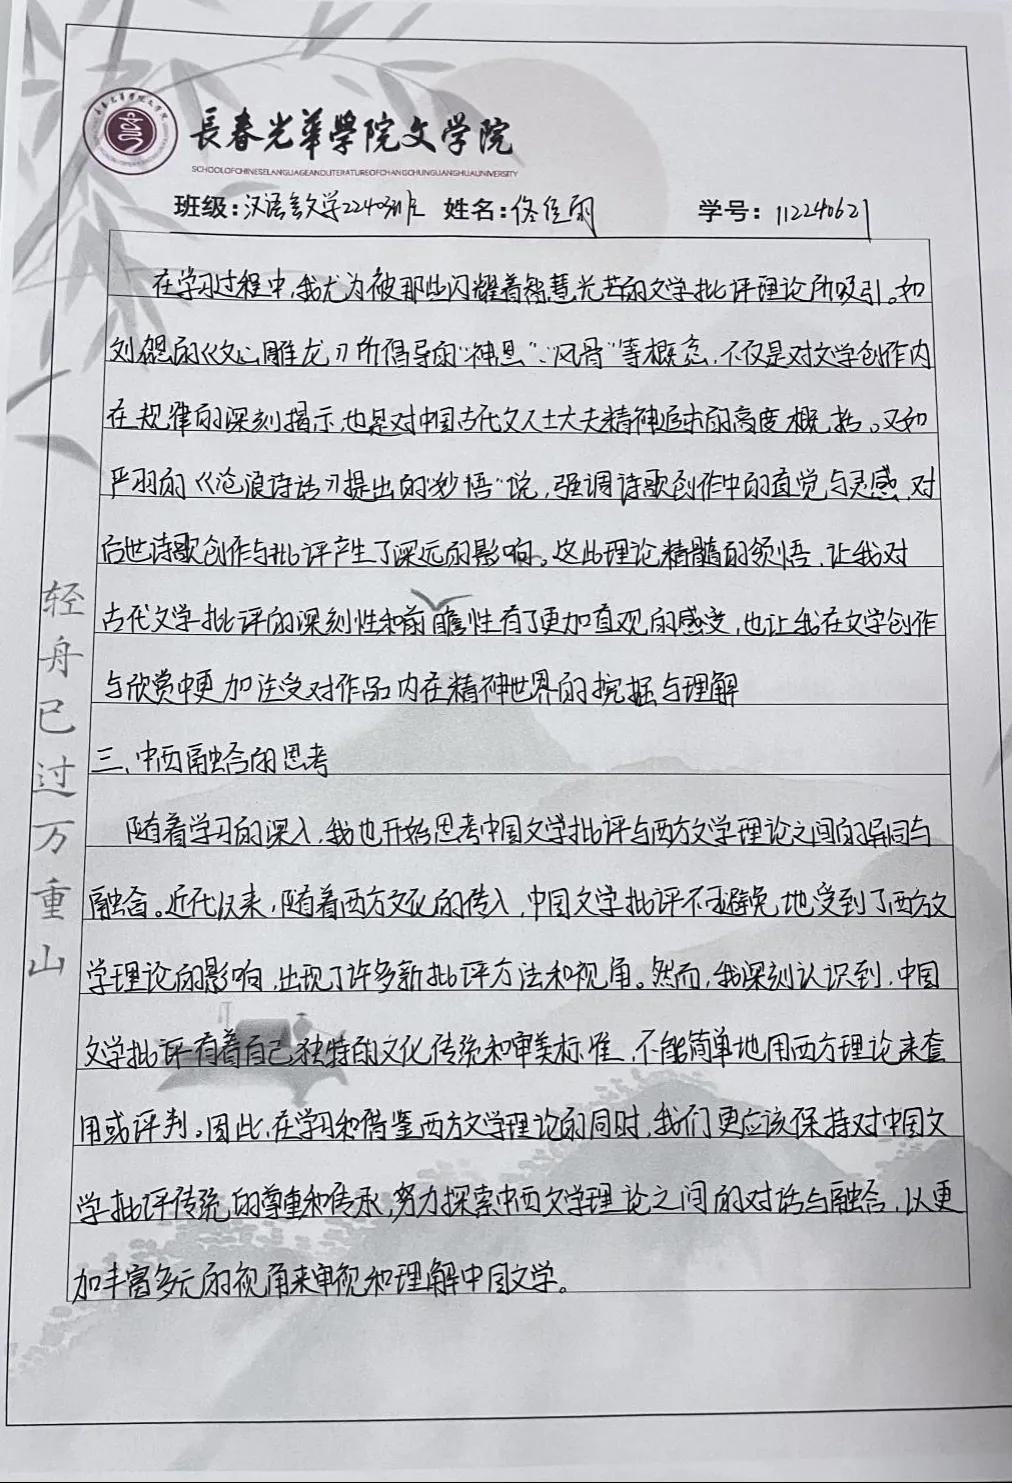 長春光華學院文学院
SCHOOLOFCHINESELANGUAGEANDLITERATUREOFCHANGCHUNGUANGHUAUNIVERSITY
班级:汉语言文学22403班 姓名:佟佳雨 学号:112240621
在学习过程中,我尤为被那些闪耀着智慧光芒的文学批评理论所吸引。如
刘勰的《文心雕龙》所倡导的“神思”、“风骨”等概念,不仅是对文学创作内
在规律的深刻揭示,也是对中国古代文人士大夫精神追求的高度概括。又如
严羽的《沧浪诗话》提出的“妙悟”说,强调诗歌创作中的直觉与灵感,对
后世诗歌创作与批评产生了深远的影响。这些理论精髓的领悟,让我对
古代文学批评的深刻性和前瞻性有了更加直观的感受,也让我在文学创作
与欣赏中更加注受对作品内在精神世界的挖掘与理解
三、中西融合的思考
随着学习的深入,我也开始思考中国文学批评与西方文学理论之间的异同与
融合。近代以来,随着西方文化的传入,中国文学批评不可避免地受到了西方文
学理论的影响,出现了许多新批评方法和视角。然而,我深刻认识到,中国
文学批评有着自己独特的文化传统和审美标准,不能简单地用西方理论来套
用或评判。因此,在学习和借鉴西方文学理论的同时,我们更应该保持对中国文
学批评传统的尊重和传承,努力探索中西文学理论之间的对话与融合,以更
加丰富多元的视角来审视和理解中国文学。
轻舟已过万重山